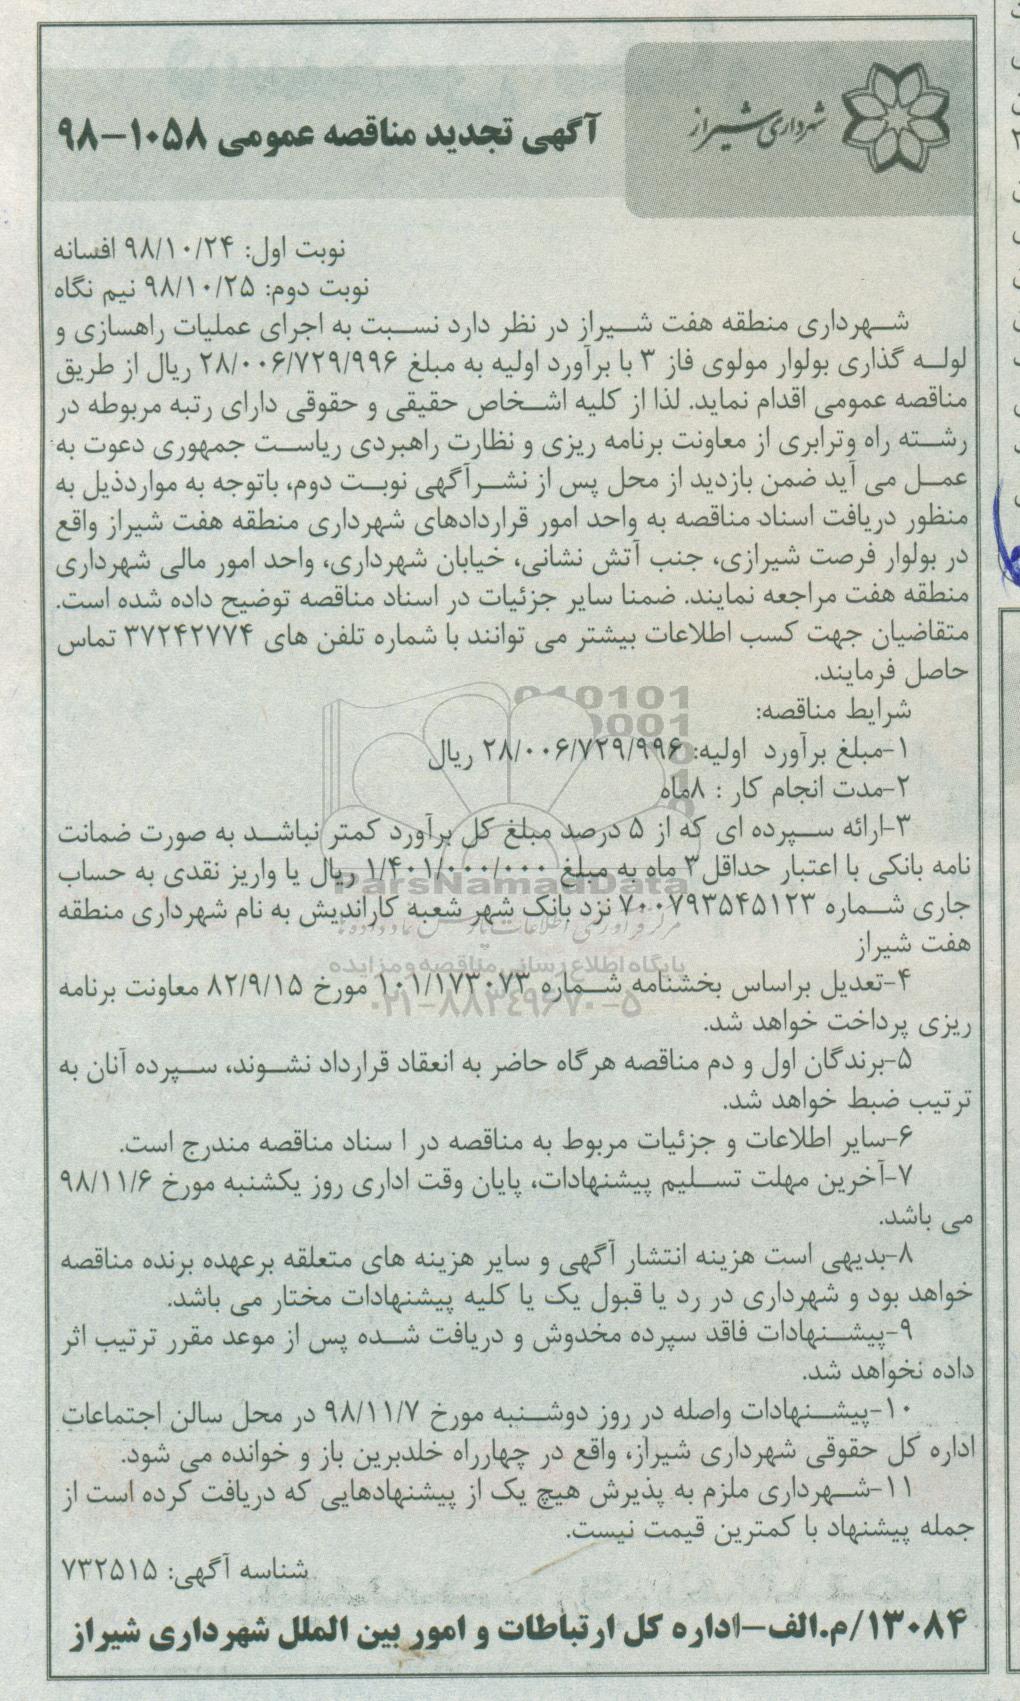 شهرداری شیراز
آگهی تجدید مناقصه عمومی ۱۰۵۸-۹۸
نوبت اول: ۹۸/۱۰/۲۴ افسانه
نوبت دوم: ۹۸/۱۰/۲۵ نیم نگاه
شهرداری منطقه هفت شیراز در نظر دارد نسبت به اجرای عملیات راهسازی و
لوله گذاری بولوار مولوی فاز ۳ با برآورد اولیه به مبلغ ۲۸/۰۰۶/۷۲۹/۹۹۶ ریال از طریق
مناقصه عمومی اقدام نماید. لذا از کلیه اشخاص حقیقی و حقوقی دارای رتبه مربوطه در
رشته راه وترابری از معاونت برنامه ریزی و نظارت راهبردی ریاست جمهوری دعوت به
عمل می آید ضمن بازدید از محل پس از نشرآگهی نوبت دوم، باتوجه به مواردذیل به
منظور دریافت اسناد مناقصه به واحد امور قراردادهای شهرداری منطقه هفت شیراز واقع
در بولوار فرصت شیرازی، جنب آتش نشانی، خیابان شهرداری، واحد امور مالی شهرداری
منطقه هفت مراجعه نمایند. ضمنا سایر جزئیات در اسناد مناقصه توضیح داده شده است.
متقاضیان جهت کسب اطلاعات بیشتر می توانند با شماره تلفن های ۳۷۲۴۲۷۷۴ تماس
حاصل فرمایند.
شرایط مناقصه:
۱-مبلغ برآورد اولیه: ۲۸/۰۰۶/۷۲۹/۹۹۶ ریال
۲-مدت انجام کار : ۸ماه
۳-ارائه سپرده ای که از ۵ درصد مبلغ کل برآورد کمتر نباشد به صورت ضمانت
نامه بانکی با اعتبار حداقل ۳ ماه به مبلغ ۱/۴۰۱/۰۰۰/۰۰۰ ریال یا واریز نقدی به حساب
جاری شماره ۷۰۰۷۹۳۵۴۵۱۲۳ نزد بانک شهر شعبه کاراندیش به نام شهرداری منطقه
هفت شیراز
۴-تعدیل براساس بخشنامه شماره ۱۰۱/۱۷۳۰۷۳ مورخ ۸۲/۹/۱۵ معاونت برنامه
ریزی پرداخت خواهد شد.
۵-برندگان اول و دم مناقصه هرگاه حاضر به انعقاد قرارداد نشوند، سپرده آنان به
ترتیب ضبط خواهد شد.
۶-سایر اطلاعات و جزئیات مربوط به مناقصه در ا سناد مناقصه مندرج است.
۷-آخرین مهلت تسلیم پیشنهادات، پایان وقت اداری روز یکشنبه مورخ ۹۸/۱۱/۶
می باشد.
۸-بدیهی است هزینه انتشار آگهی و سایر هزینه های متعلقه برعهده برنده مناقصه
خواهد بود و شهرداری در رد یا قبول یک یا کلیه پیشنهادات مختار می باشد.
۹-پیشنهادات فاقد سپرده مخدوش و دریافت شده پس از موعد مقرر ترتیب اثر
داده نخواهد شد.
۱۰-پیشنهادات واصله در روز دوشنبه مورخ ۹۸/۱۱/۷ در محل سالن اجتماعات
اداره کل حقوقی شهرداری شیراز، واقع در چهارراه خلدبرین باز و خوانده می شود.
۱۱-شهرداری ملزم به پذیرش هیچ یک از پیشنهادهایی که دریافت کرده است از
جمله پیشنهاد با کمترین قیمت نیست.
شناسه آگهی: ۷۳۲۵۱۵
۱۳۰۸۴/م.الف-اداره کل ارتباطات و امور بین الملل شهرداری شیراز
ParsNamadData
پایگاه اطلاع رسانی مناقصه و مزایده
۰۲۱-۸۸۳۴۹۶۷۰-۵